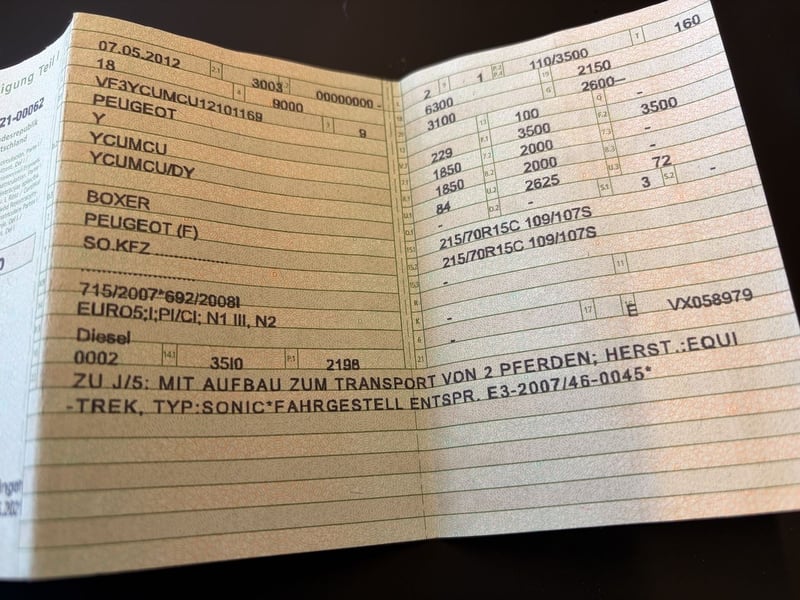 igung Teil I
21-00062
desrepublik
tschland
07.05.2012 2.1 3003 2.2 00000000 -
18 9000
VF3YCUMCU12101169 3 9
PEUGEOT
Y
YCUMCU
YCUMCU/DY
BOXER
PEUGEOT (F)
SO.KFZ
715/2007*692/2008I
EURO5;I;PI/CI; N1 III, N2
Diesel
0002 14.1 35I0 P.1 2198
2 9 1 P.2 P.4 110/3500 T 160
6300 19 2150
3100 G 2600—
13 100 Q -
229 7.1 3500 F.2 3500
1850 7.2 2000 -
1850 8.2 2000 8.3 -
84 U.2 2625 U.3 72
- O.2 - S.1 3 S.2 -
215/70R15C 109/107S
215/70R15C 109/107S
- 11
- 17 E VX058979
-
ZU J/5: MIT AUFBAU ZUM TRANSPORT VON 2 PFERDEN; HERST.:EQUI
-TREK, TYP:SONIC*FAHRGESTELL ENTSPR. E3-2007/46-0045*